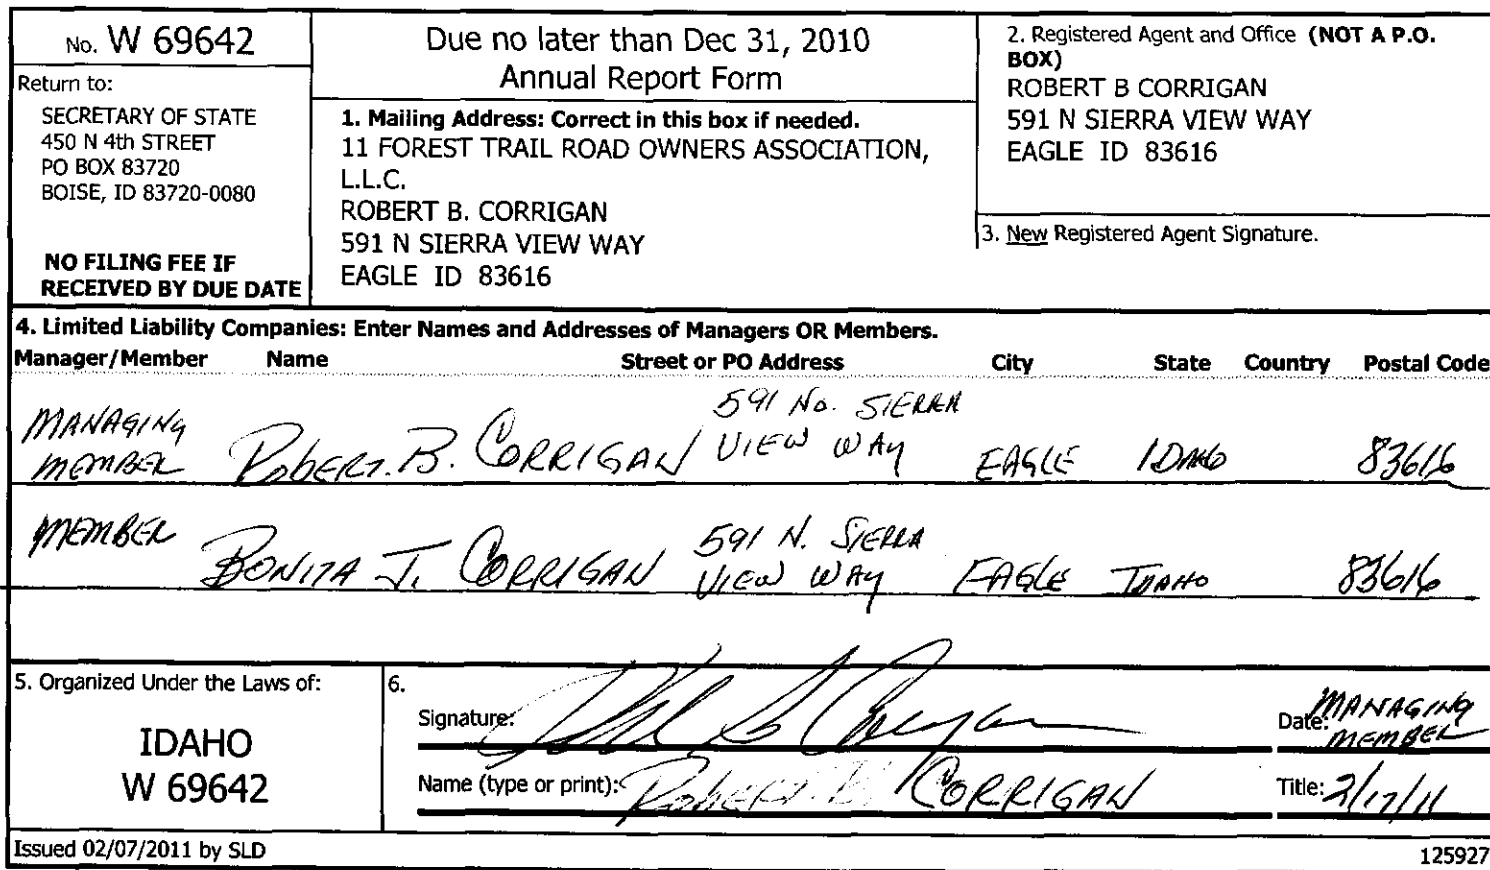 No. W 69642
Return to:
SECRETARY OF STATE
450 N 4th STREET
PO BOX 83720
BOISE, ID 83720-0080
NO FILING FEE IF
RECEIVED BY DUE DATE
Due no later than Dec 31, 2010
Annual Report Form
1. Mailing Address: Correct in this box if needed.
11 FOREST TRAIL ROAD OWNERS ASSOCIATION,
L.L.C.
ROBERT B. CORRIGAN
591 N SIERRA VIEW WAY
EAGLE ID 83616
2. Registered Agent and Office (NOT A P.O.
BOX)
ROBERT B CORRIGAN
591 N SIERRA VIEW WAY
EAGLE ID 83616
3. New Registered Agent Signature.
4. Limited Liability Companies: Enter Names and Addresses of Managers OR Members.
Manager/Member Name Street or PO Address City State Country Postal Code
MANAGING
MEMBER ROBERT. B. CORRIGAN 591 No. SIERRA
VIEW WAY EAGLE IDAHO 83616
MEMBER BONITA J. CORRIGAN 591 N. SIERRA
VIEW WAY EAGLE IDAHO 83616
5. Organized Under the Laws of:
IDAHO
W 69642
6.
Signature:
Date: MANAGING
MEMBER
Name (type or print): ROBERT B. CORRIGAN
Title: 2/17/11
Issued 02/07/2011 by SLD
125927